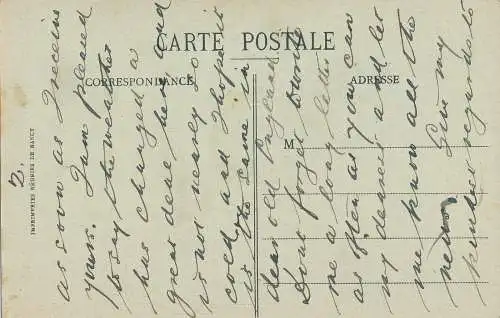 CARTE POSTALE
CORRESPONDANCE
ADRESSE
M
IMPRIMERIES RÉUNIES DE NANCY
2.
as soon as I receive
yours. I am pleased
to say the weather
has changed a
great deal here and
is not nearly so
cold and I hope it
is the same in
dear old England
Dont forget write
me a long letter
as often as you can
my dearest and let
me know all the
news. Give my
kindest regards to